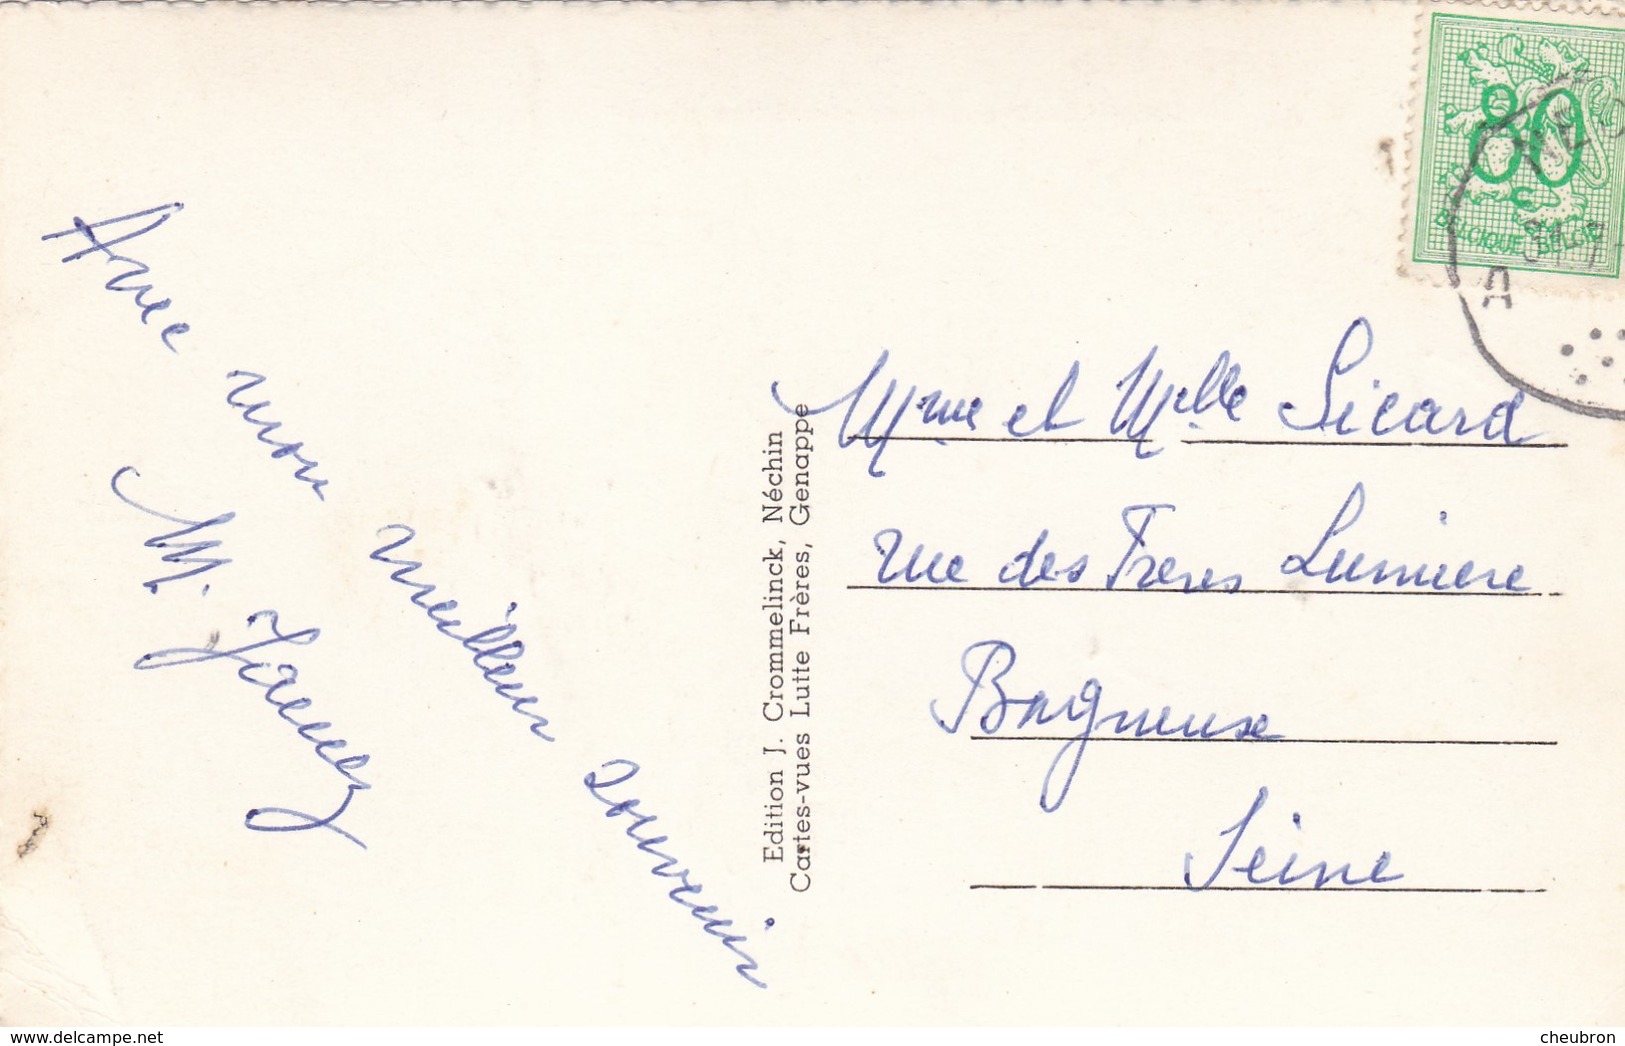 Avec mon meilleur souvenir
Edition J. Crommelinck, Néchin
Cartes-vues Lutte Frères, Genappe
80
C
BELGIQUE BELGIE
31-7
Mme et Melle Sicard
rue des Freres Lumiere
Bagneux
Seine
delcampe.net
cheubron